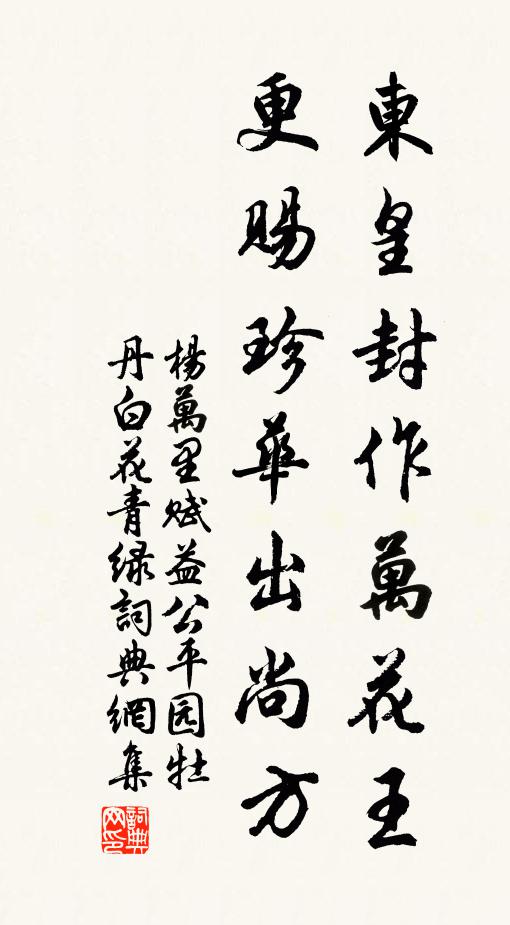 東皇封作萬花王
更賜珍華出尚方
楊萬里賦益公平园牡
丹白花青緑詞典網集
詞典
网印